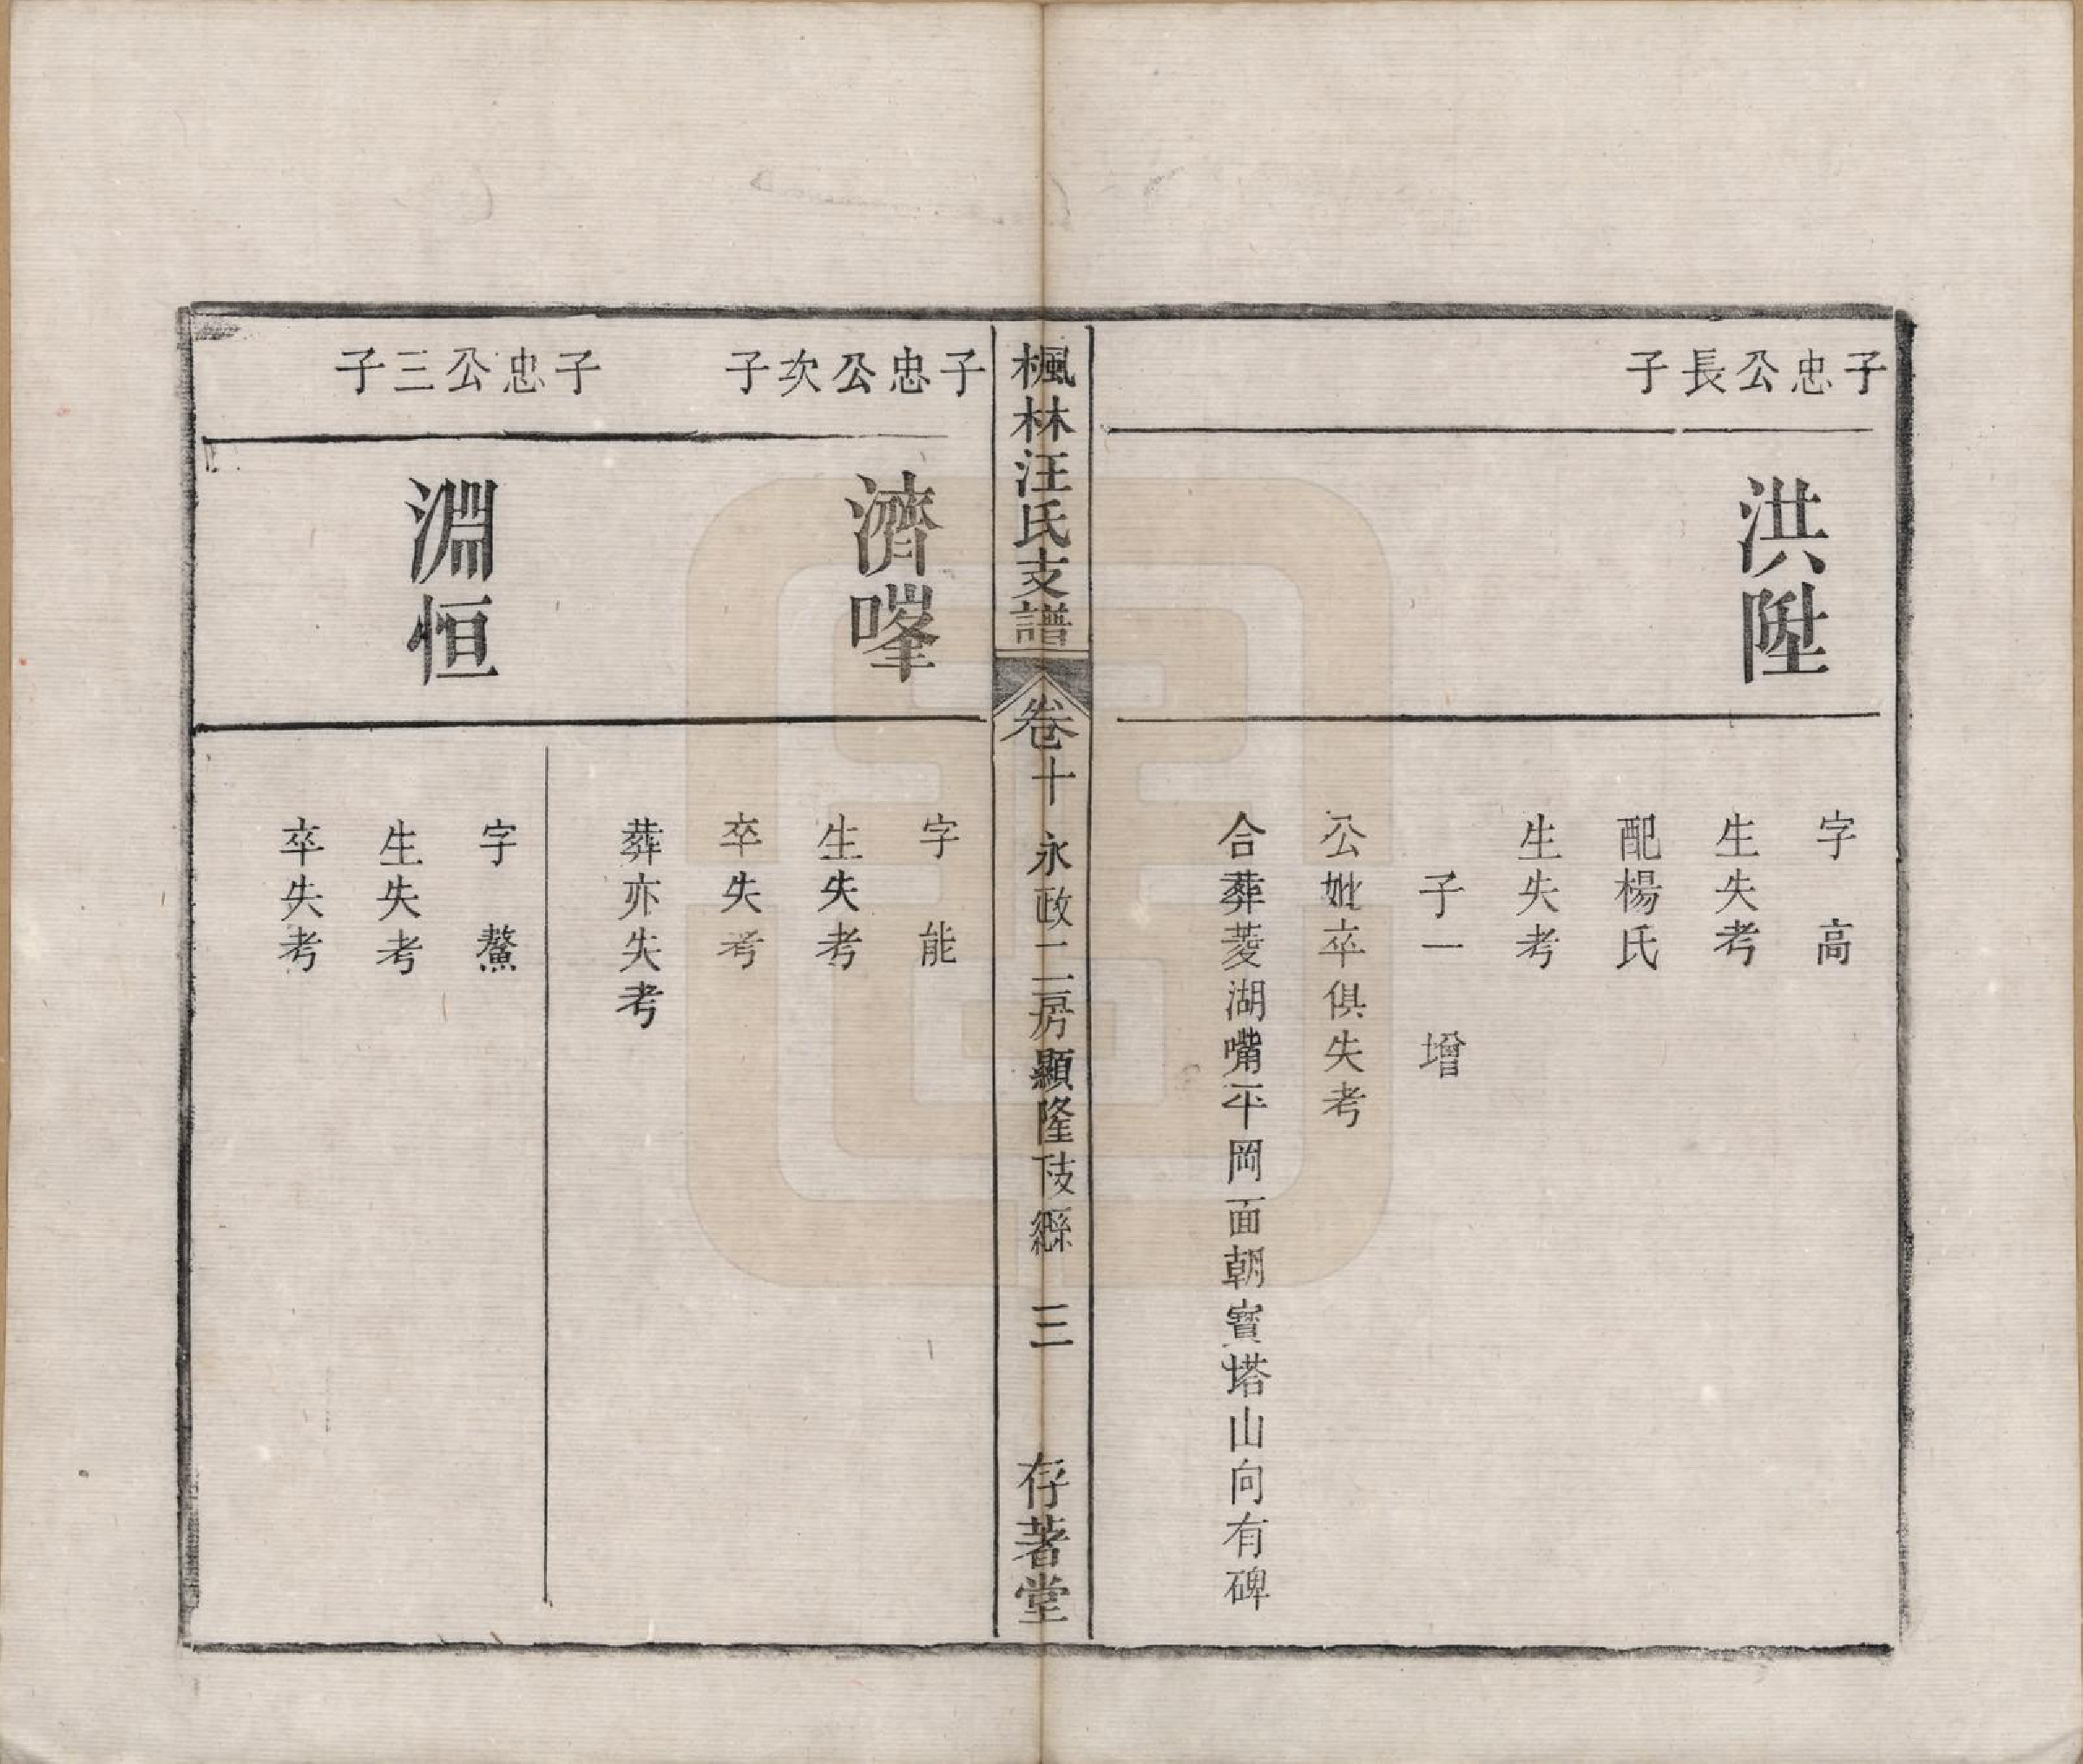 子忠公長子
洪陞
字高
生失考
配楊氏
生失考
子一 增
公妣卒俱失考
合葬菱湖嘴平岡面朝寶塔山向有碑
楓林汪氏支譜 卷十 永政二房顯隆下支縣 三 存著堂
子忠公次子
濟嗺
字能
生失考
卒失考
葬亦失考
子忠公三子
淵恒
字鰲
生失考
卒失考